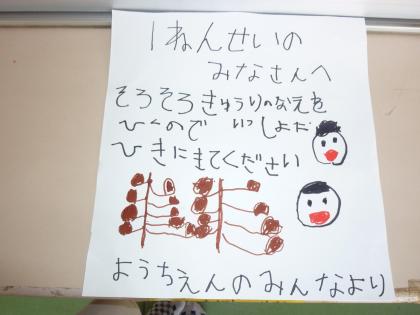 1ねんせいの
みなさんへ
そろそろきゅうりのなえを
ひくので いっしょだ
ひきにきてください
ようちえんのみんなより